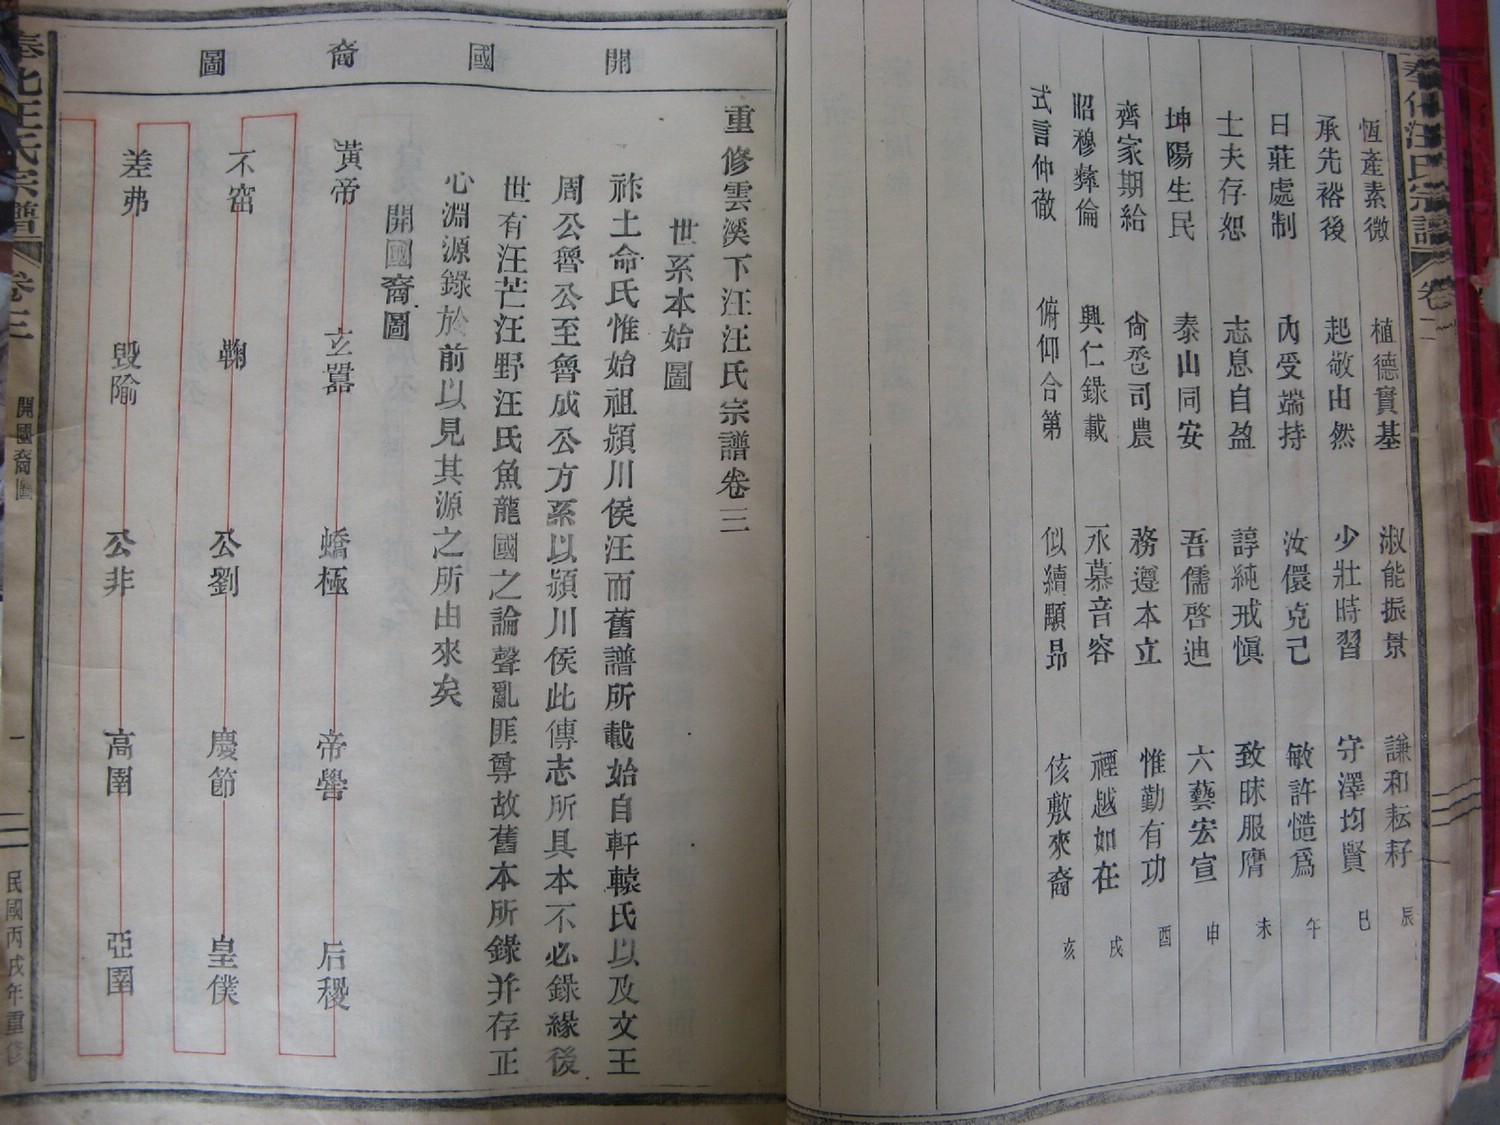 奉化汪氏宗譜 卷二
恆產素微 植德實基 淑能振景 謙和耘耔 辰
承先裕後 起敬由然 少壯時習 守澤均賢 巳
日莊處制 內受端持 汝儇克己 敏許慥爲 午
士夫存恕 志息自盈 諄純戒愼 致昧服膺 未
坤陽生民 泰山同安 吾儒啓迪 六藝宏宣 申
齊家期給 尙烝司農 務遵本立 惟勤有功 酉
昭穆彝倫 興仁錄載 永慕音容 禋越如在 戌
式言仲徹 俯仰合第 似續顒昻 侅敷來裔 亥
開國裔圖
重修雲溪下汪汪氏宗譜卷三
世系本始圖
祚土命氏惟始祖潁川侯汪而舊譜所載始自軒轅氏以及文王
周公魯公至魯成公方系以潁川侯此傳志所具本不必錄緣後
世有汪芒汪野汪氏魚龍國之論聲亂匪尊故舊本所錄并存正
心淵源錄於前以見其源之所由來矣
開國裔圖
黃帝 玄囂 蟜極 帝嚳 后稷
不窋 鞠 公劉 慶節 皇僕
差弗 毀隃 公非 高圉 亞圉
奉化汪氏宗譜 卷三 開國裔圖 一 民國丙戌年重修